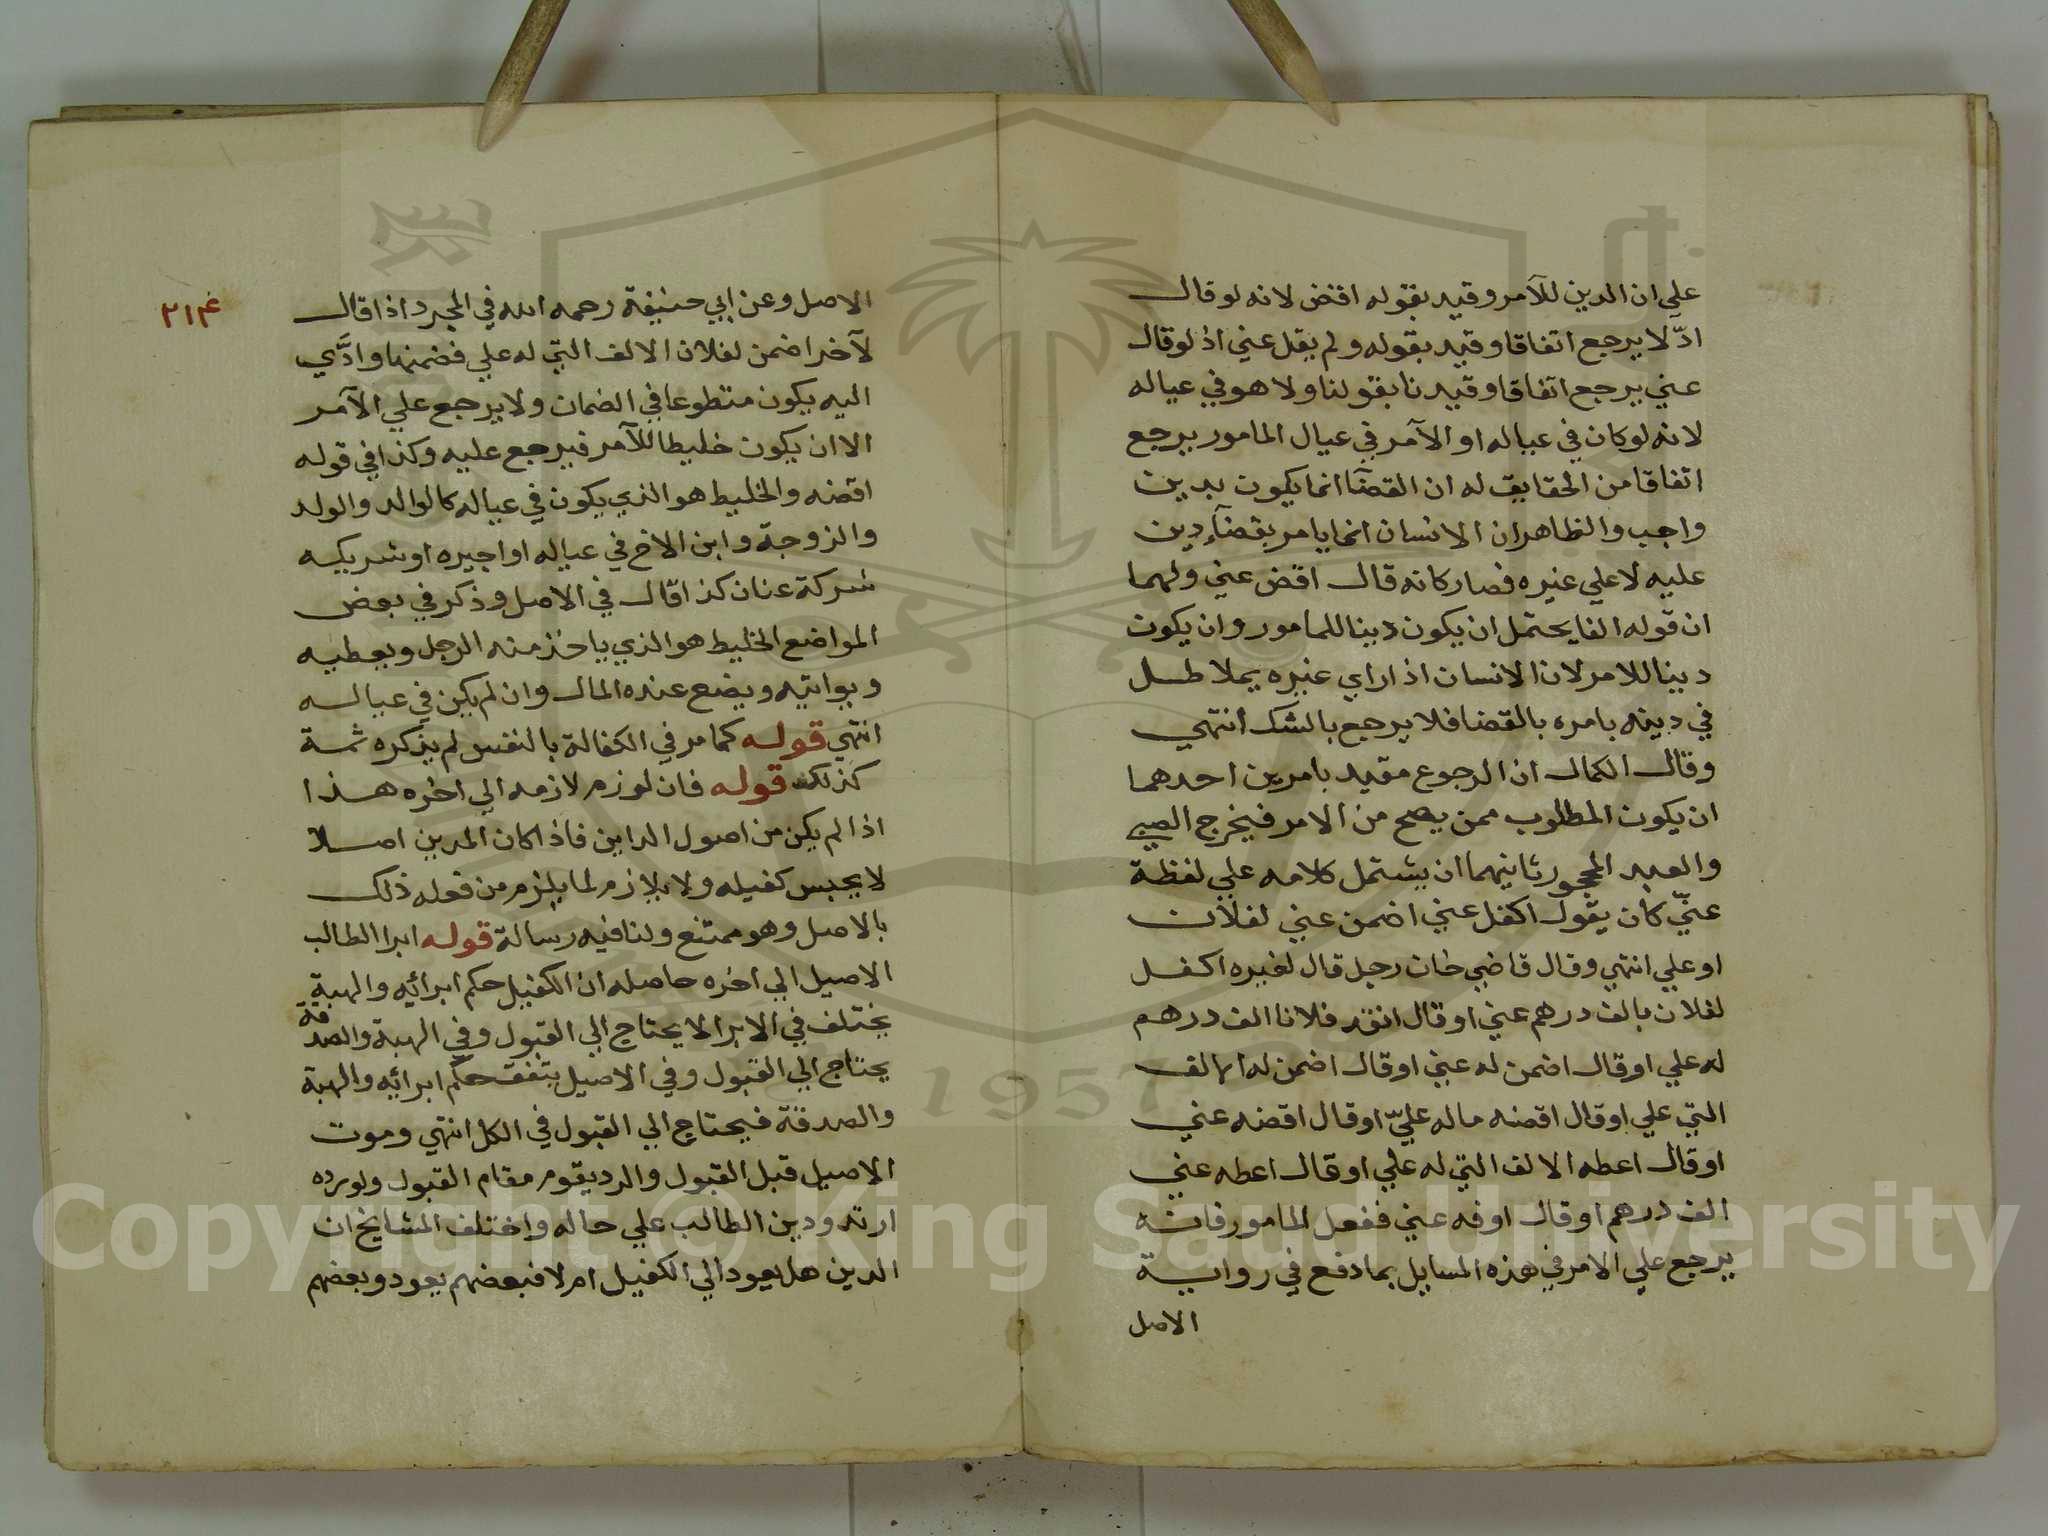 علي ان الدين للآمر وقيد بقوله اقض لانه لو قال
ادّ لا يرجع اتفاقا وقيد بقوله ولم يقل عني اذ لو قال
عني يرجع اتفاقا وقيدنا بقولنا ولا هو في عياله
لانه لو كان في عياله او الآمر في عيال المامور يرجع
اتفاقا من الحقايق له ان القضآ انما يكون بدين
واجب والظاهر ان الانسان انما يامر بقضآء دين
عليه لا علي غيره فصار كانه قال اقض عني ولهما
ان قوله الفا يحتمل ان يكون دينا للمامور وان يكون
دينا للامر لان الانسان اذا راي غيره يملاطل
في دينه يامره بالقضا فلا يرجع بالشك انتهي
وقال الكمال ان الرجوع مقيد بامرين احدهما
ان يكون المطلوب ممن يصح من الامر فيخرج الصبي
والعبد المحجور ثانيهما ان يشتمل كلامه علي لفظة
عنّي كان يقول اكفل عني اضمن عني لفلان
او علي انتهي وقال قاضي خان رجل قال لغيره اكفل
لفلان بالف درهم عني او قال انقد فلانا الف درهم
له علي او قال اضمن له عني او قال اضمن له الالف
التي علي او قال اقضه ماله عليّ او قال اقضه عني
او قال اعطه الالف التي له علي او قال اعطه عني
الف درهم او قال اوفه عني ففعل المامور فانه
يرجع علي الامر في هذه المسايل بما دفع في رواية
الاصل
٢١٤
الاصل وعن ابي حنيفة رحمه الله في المجرد اذا قال
لآخر اضمن لفلان الالف التي له علي فضمنها وادَّي
اليه يكون متطوعا في الضمان ولا يرجع علي الآمر
الا ان يكون خليطا للآمر فيرجع عليه وكذا في قوله
اقضه والخليط هو الذي يكون في عياله كالوالد والولد
والزوجة وابن الاخ في عياله او اجيره او شريكه
شركة عنان كذا قال في الاصل وذكر في بعض
المواضع الخليط هو الذي ياخذ منه الرجل ويعطيه
ويواتيه ويضع عنده المال وان لم يكن في عياله
انتهي قوله كما مر في الكفالة بالنفس لم يذكره ثمة
كذلك قوله فان لوزم لازمه الي اخره هذا
اذا لم يكن من اصول الداين فاذا كان المدين اصلا
لا يحبس كفيله ولا يلازم لما يلزم من فعله ذلك
بالاصل وهو ممتنع ولنا فيه رسالة قوله ابرا الطالب
الاصيل الي اخره حاصله ان الكفيل حكم ابرائه والهبة
يختلف في الابرا لا يحتاج الي القبول وفي الهبة والصدقة
يحتاج الي القبول وفي الاصيل يتفق حكم ابرائه والهبة
والصدقة فيحتاج الي القبول في الكل انتهي وموت
الاصيل قبل القبول والرد يقوم مقام القبول ولو رده
ارتد ودين الطالب علي حاله واختلف المشايخ ان
الدين هل يعود الي الكفيل ام لا فبعضهم يعود وبعضهم
1957
Copyright © King Saud University